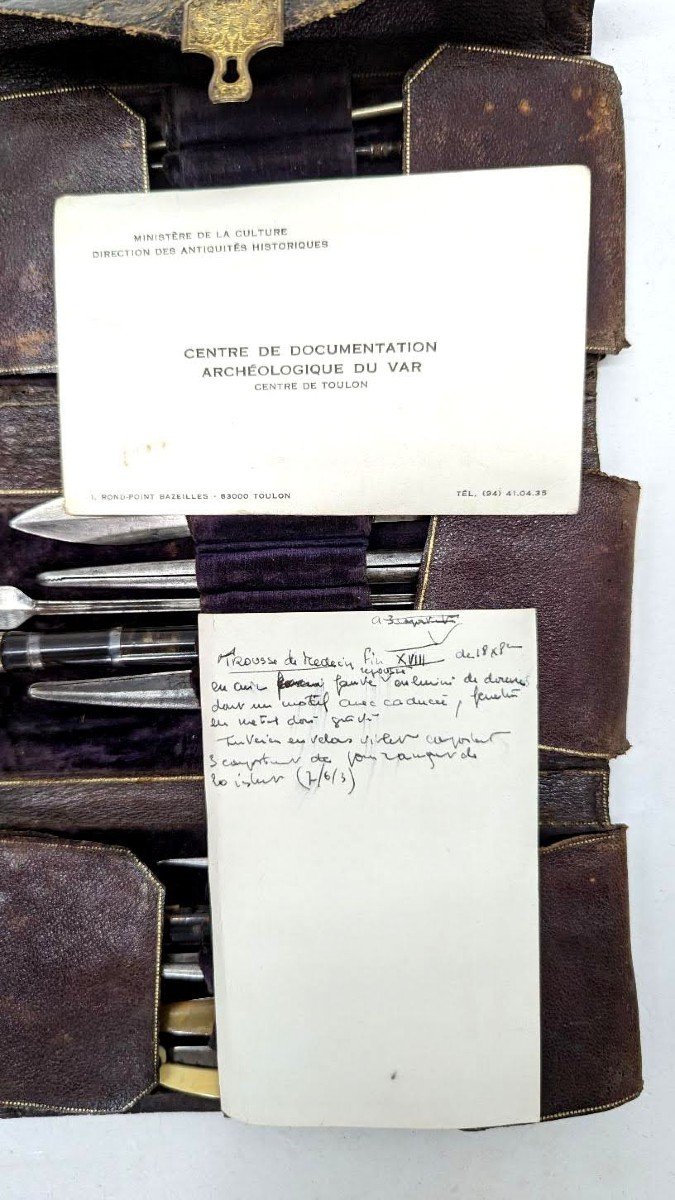 MINISTÈRE DE LA CULTURE
DIRECTION DES ANTIQUITÉS HISTORIQUES
CENTRE DE DOCUMENTATION
ARCHÉOLOGIQUE DU VAR
CENTRE DE TOULON
1, ROND-POINT BAZEILLES - 83000 TOULON
TÉL. (94) 41.04.35
Trousse de Medecin Fin XVIII
en cuir fauve de dorures
dont un motif avec caducée,
en metal doré gravé
Interieur en velours violet
3 pour ranger
(7/6/3)